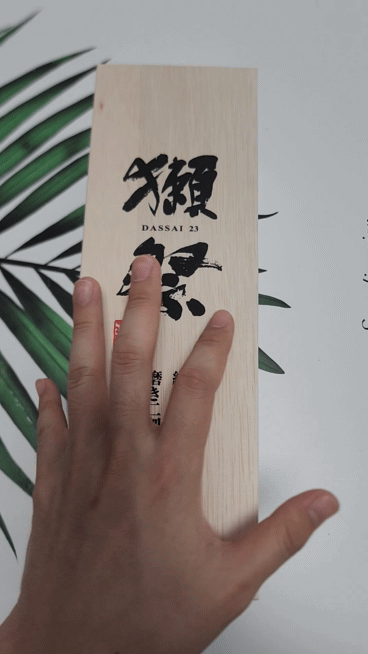 獺
DASSAI 23
祭
磨き二